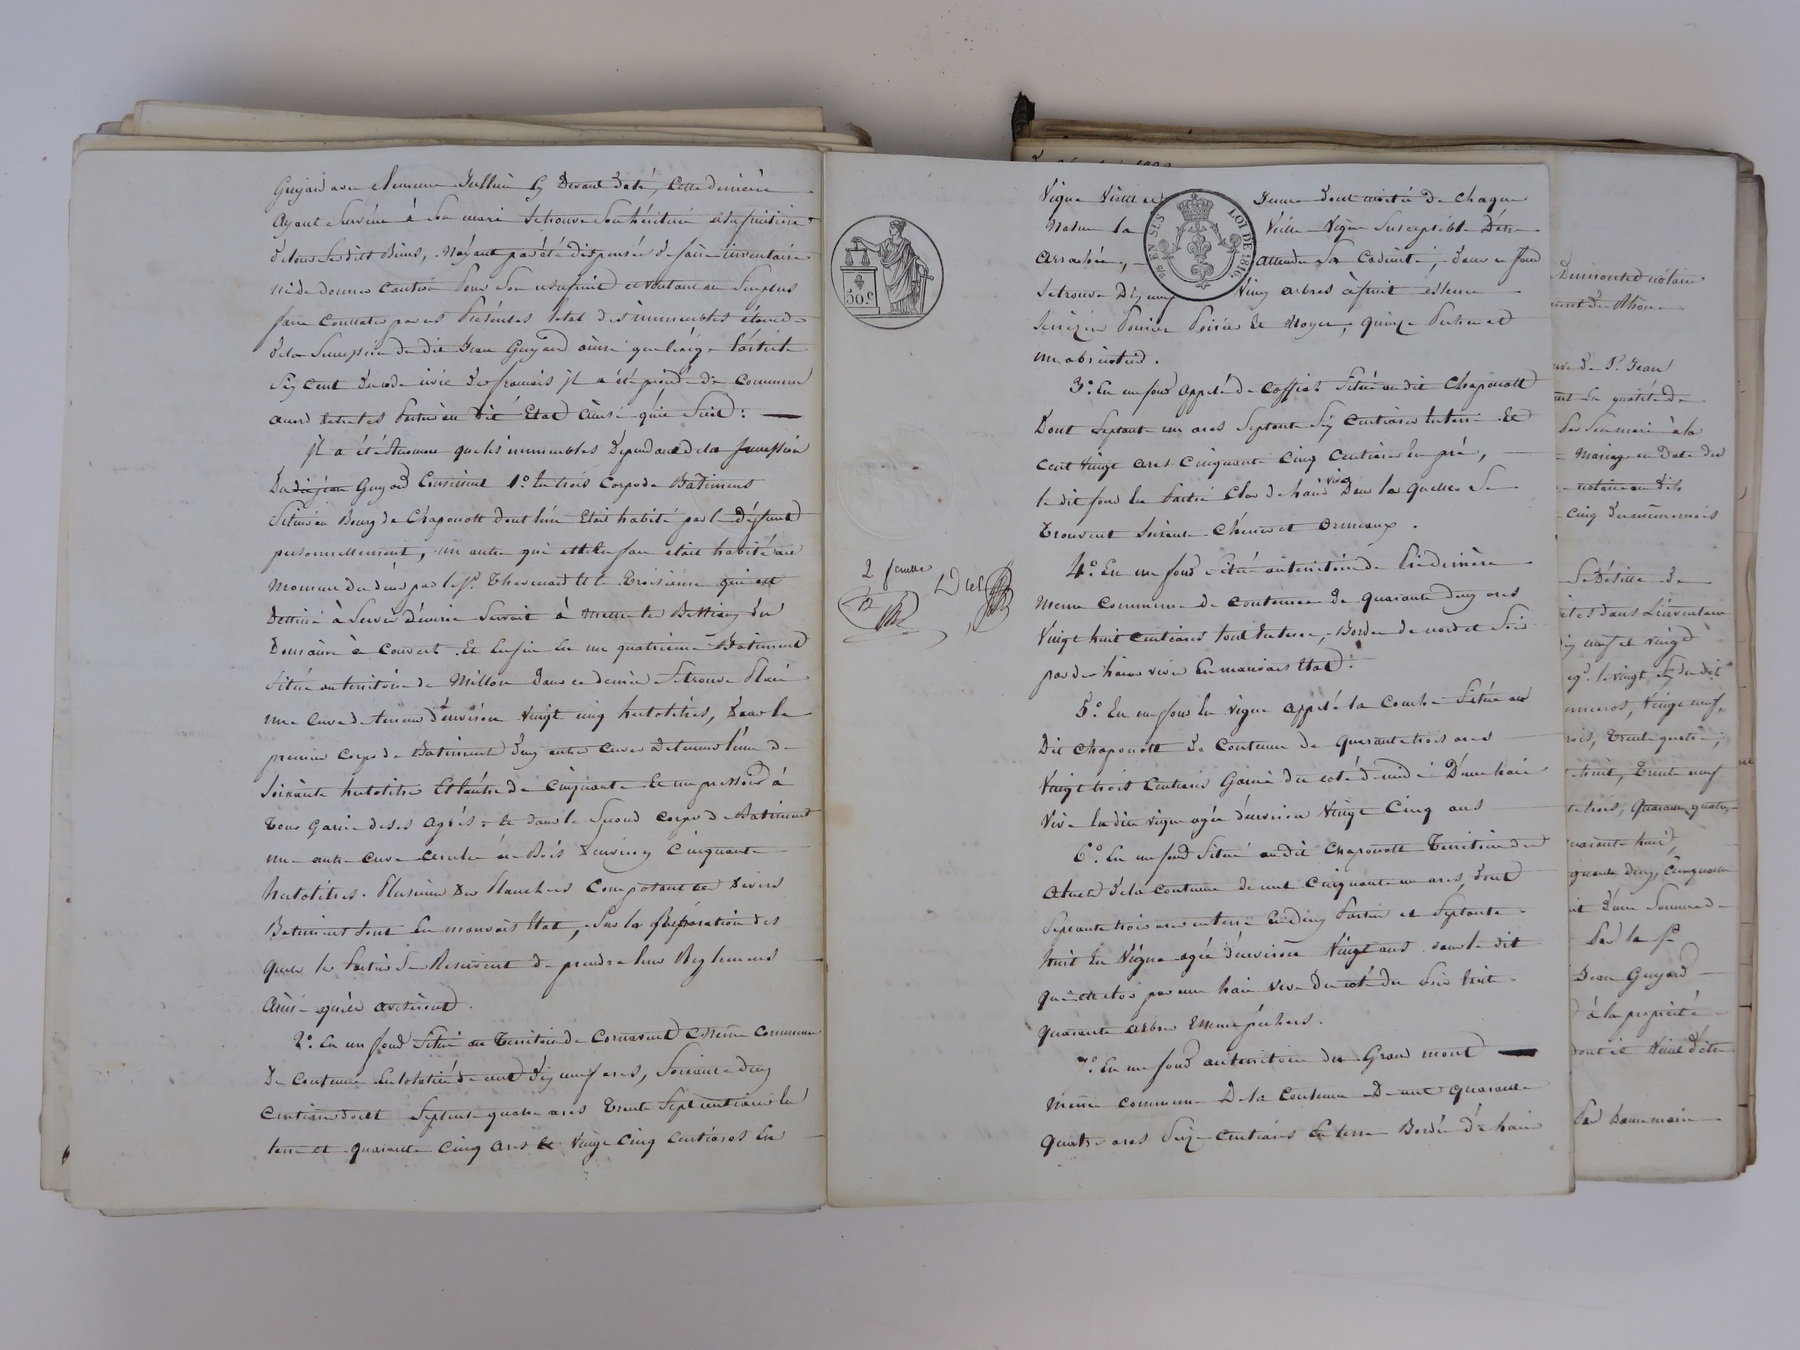 Guyard avec clemence Jullien cy devant daté, cette dernière
ayant Survécu à Son mari Setrouve Son héritière usufruitière
de tous Ses dits Biens, N'ayant pas été dispensée de faire inventaire
ni de donner caution Pour Son usufruit et voulant au Surplus
faire Constater par ces Présentes letat des immeubles
de la Succession du dit Jean Guyard ainsi que l'exige l'article
Six cent du code civil des français il a été procédé de commun
accord entre les Parties au dit Etat Ainsi qu'il Suit :
Il a été reconnu que les immeubles Dépendant de la Succession
Du dit jean Guyard Consistent 1.° En trois Corps de Bâtiment
Situés au Bourg de Chaponost dont l'un Etait habité par le défunt
personnellement, un autre qui est en face etait habité au
moment du décès par le Sr. Thevenard et le troisième qui est
Destiné à Servir d'écurie Servait à mettre les Bestiaux du
Domaine à Couvert. Et Enfin En un quatrième Batiment
Situé au territoire de Millon Dans ce dernier Setrouve Placé
une Cuve de teneur d'environ vingt cinq hectolitres, Dans le
premier Corps de Batiment deux autres cuves De teneur l'une de
Soixante hectolitres Et l'autre de Cinquante Et un pressoir à
Tour Garni de Ses Agrès. Et dans le Second corps de Batiment
une autre cuve cerclée en Bois d'environ Cinquante
hectolitres. Plusieurs des Planchers Composant ces divers
Batiment Sont En mauvais Etat, Sur la Réparation des
quels les Parties Se Reservent de prendre leur Reglement
Ainsi qu'elles aviseront.
2.° En un fond Situé au Territoire de Cornavent même Commune
De Contenue En totalité de cent dix neuf ares, Soixante deux
Centiares dont Septante quatre ares Trente Sept centiares En
terre et quarante Cinq Ares et Vingt Cinq Centiares En
50.c
2 feuille
Vigne Vieille et Jeune dont moitié De Chaque
Nature la Vieille Vigne Susceptible D'être
Arrachée, attendu Sa Caducité, dans ce fond
Se trouve Dix neuf Vieux arbres à fruit essence
Cerizier Pommier Poirier Et Noyer, quinze Pecher et
un abricotier.
EN SUS LOI DE 1816.
3.° En un fond appelé de Coffiat Situé au dit Chaponost
Dont Septante un ares Septante Six Centiares En terre Et
Cent Vingt ares Cinquante Cinq Centiares En pré,
le dit fond En Partie Clos de haies vives Dans lesquelles Se
Trouvent Soixante Chênes et Ormeaux.
4.° En un fond Situé au territoire de Piedernière
même Commune de Contenue De quarante deux ares
Vingt huit Centiares tout En terre, Bordé de nord et Soir
par des haies vives En mauvais Etat.
5.° En un fond En vigne appelé la Combe Situé au
Dit Chaponost De Contenue De quarante trois ares
Vingt trois Centiares Garni du coté de midi D'une haie
Vive la dite vigne agée d'environ Vingt Cinq ans
6.° En un fond Situé au dit Chaponost Territoire du
De la Contenue De cent Cinquante un ares, dont
Septante trois ares en terre En deux Parties et Septante
huit En Vigne agée d'environ Vingt ans dans le dit
qui est clos par une haie vive Du coté du Soir Sont
Quarante arbres Essence pechers.
7.° En un fond au territoire du Grand mont
même Commune De la Contenue De cent quarante
Quatre ares Seize Centiares En terre Bordé de haie
notaire
Sr. Jean
Son mari à la
Mariage en Date du
notaire au dit
Se Désiste de
Vingt neuf
Trente neuf
quarante huit
d'une Somme de
Par la
Jean Guyard
à la propriété
dont il Vient d'être